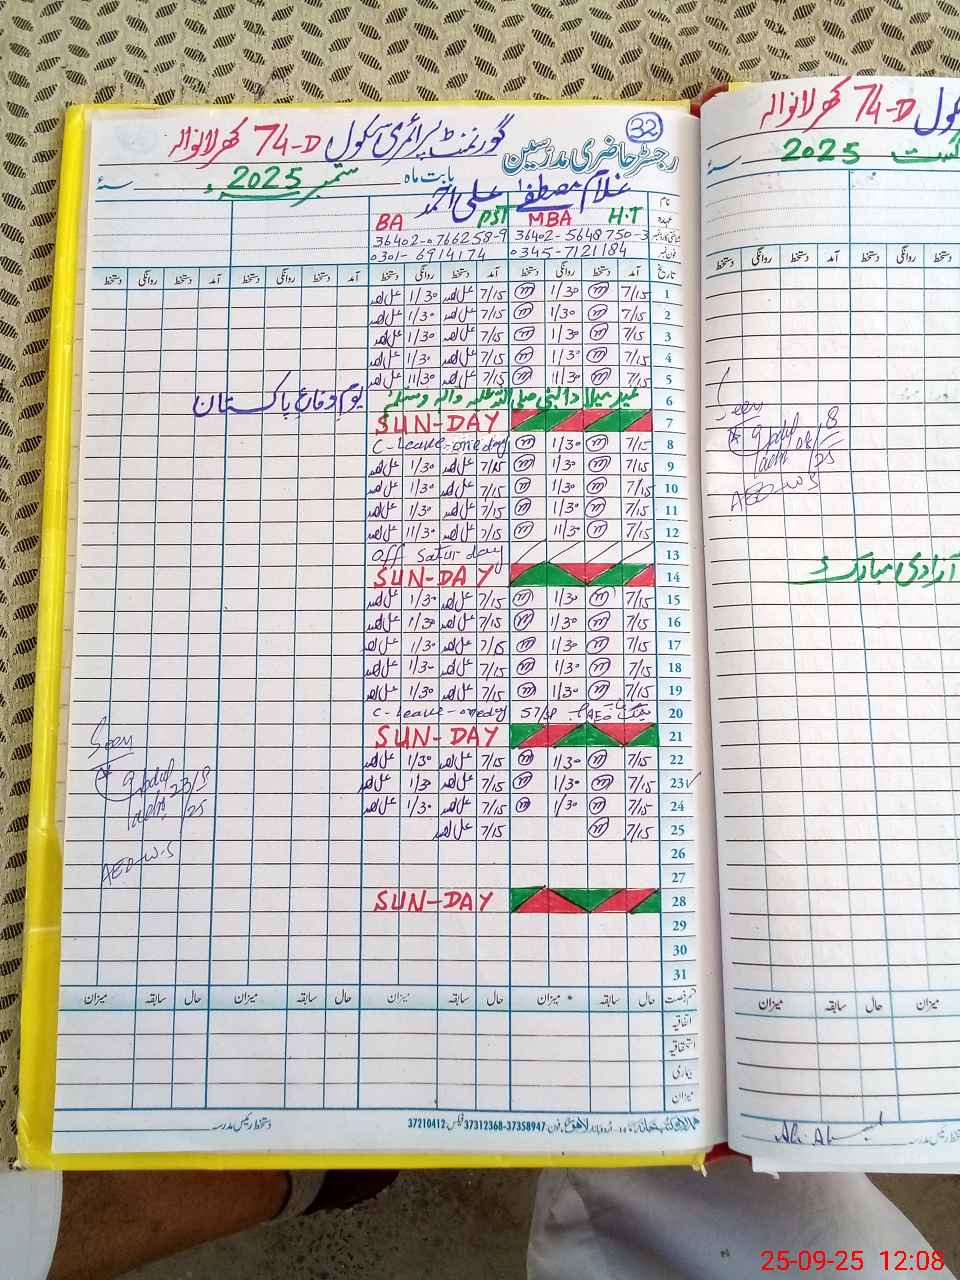 32
رجسٹر حاضری مدرسین گورنمنٹ پرائمری سکول 74-D کھرلانوالہ
بابت ماہ ستمبر 2025ء
نام غلام مصطفیٰ علی احمد
عہدہ H.T MBA PST BA
36402-5648750-3 36402-0766258-9
فون نمبر 0345-7121184 0301-6914174
تاریخ آمد دستخط روانگی دستخط آمد دستخط روانگی دستخط آمد دستخط روانگی دستخط آمد دستخط روانگی دستخط
1 7/15 m 1/30 m 7/15 علی احمد 1/30 علی احمد
2 7/15 m 1/30 m 7/15 علی احمد 1/30 علی احمد
3 7/15 m 1/30 m 7/15 علی احمد 1/30 علی احمد
4 7/15 m 1/30 m 7/15 علی احمد 1/30 علی احمد
5 7/15 m 11/30 m 7/15 علی احمد 11/30 علی احمد
6 عید میلاد النبی صلی اللہ علیہ والہ وسلم یوم دفاع پاکستان
7 SUN-DAY
8 7/15 m 1/30 m C-Leave-one day
9 7/15 m 1/30 m 7/15 علی احمد 1/30 علی احمد
10 7/15 m 1/30 m 7/15 علی احمد 1/30 علی احمد
11 7/15 m 1/30 m 7/15 علی احمد 1/30 علی احمد
12 7/15 m 11/30 m 7/15 علی احمد 11/30 علی احمد
13 Off Satur day
14 SUN-DAY
15 7/15 m 1/30 m 7/15 علی احمد 1/30 علی احمد
16 7/15 m 1/30 m 7/15 علی احمد 1/30 علی احمد
17 7/15 m 1/30 m 7/15 علی احمد 1/30 علی احمد
18 7/15 m 1/30 m 7/15 علی احمد 1/30 علی احمد
19 7/15 m 1/30 m 7/15 علی احمد 1/30 علی احمد
20 میٹنگ AEO C-Leave-one day
21 SUN-DAY
22 7/15 m 1/30 m 7/15 علی احمد 1/30 علی احمد
23 7/15 m 1/30 m 7/15 علی احمد 1/30 علی احمد
24 7/15 m 1/30 m 7/15 علی احمد 1/30 علی احمد
25 7/15 m 7/15 علی احمد
26
27
28 SUN-DAY
29
30
31
Seen
23/9
/25
AEO-W-S
قسم رخصت حال سابقہ میزان حال سابقہ میزان حال سابقہ میزان حال سابقہ میزان
اتفاقیہ
استحقاقیہ
بیماری
میزان
دستخط رئیس مدرسہ
اردو بازار لاہور فون: 37312368-37358947 فیکس: 37210412
سکول 74-D کھرلانوالہ
اگست 2025
دستخط روانگی دستخط آمد دستخط روانگی
Seen
8
/25
AEO-W-S
آزادی مبارک
میزان سابقہ حال میزان
دستخط رئیس مدرسہ
25-09-25 12:08